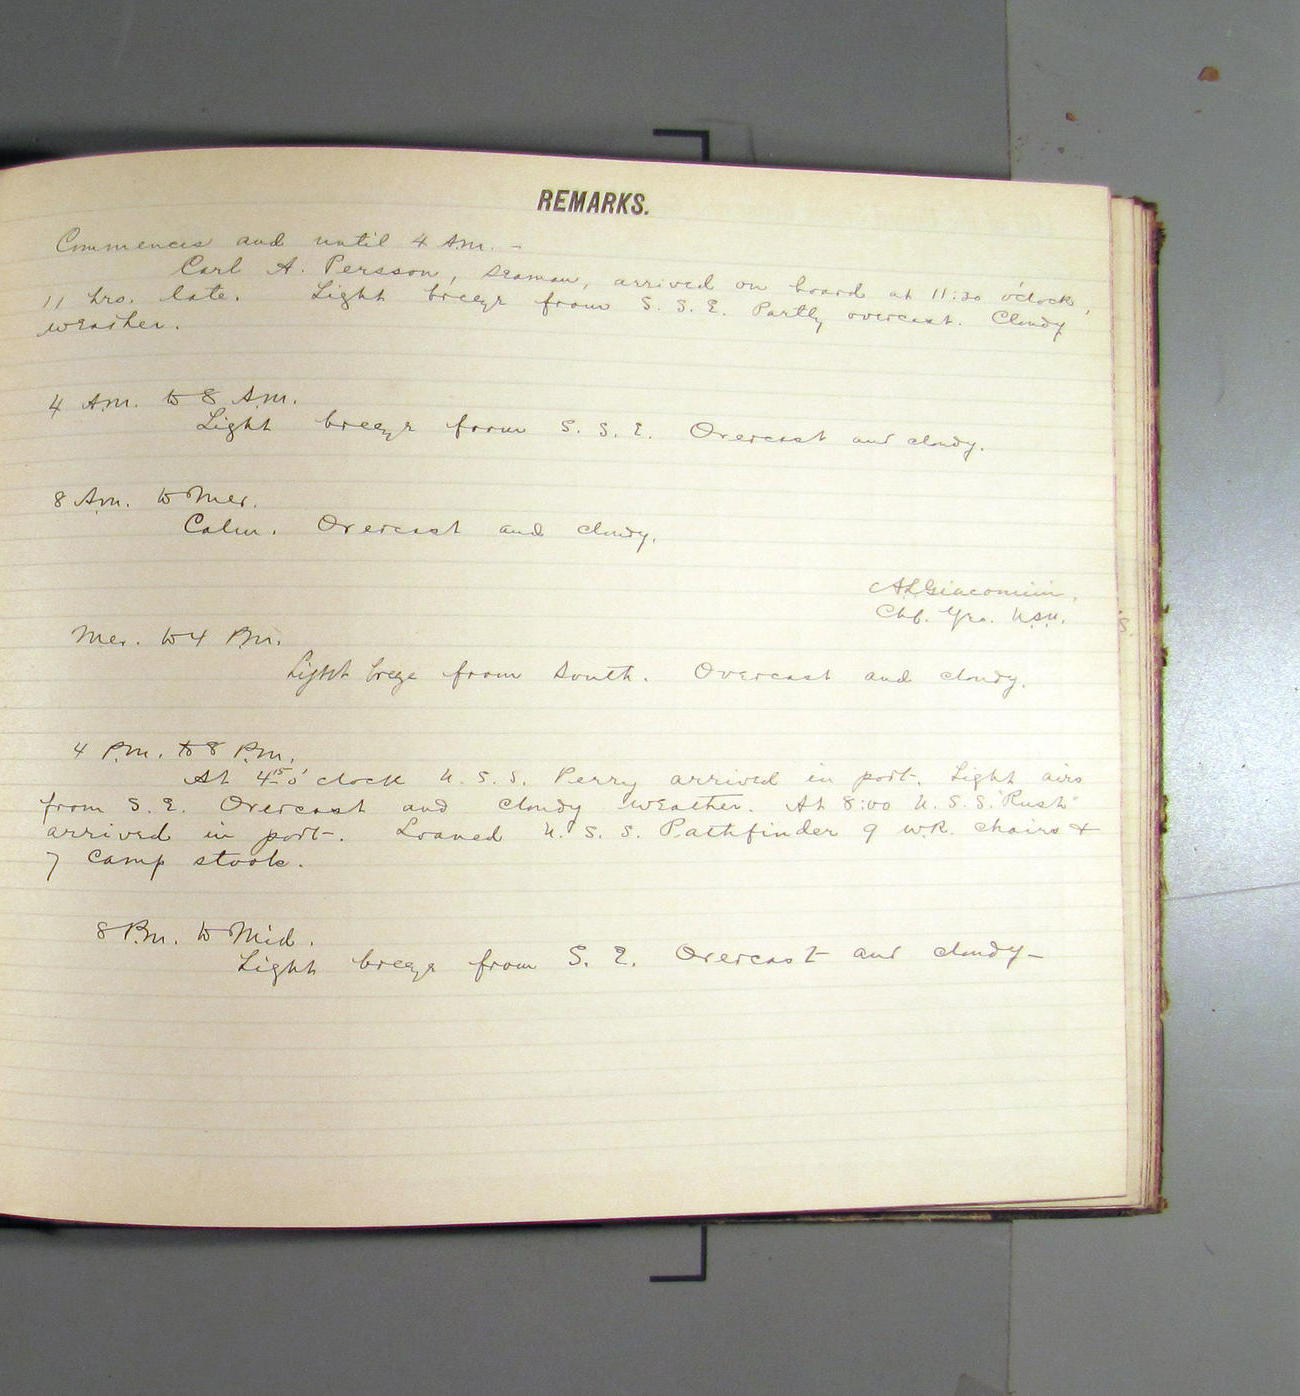 REMARKS.
Commences and until 4 A.m. -
Carl A. Persson, seaman, arrived on board at 11:30 o'clock,
11 hrs. late. Light breeze from S. S. E. Partly overcast. Cloudy
weather.
4 A.m. to 8 A.m.
Light breeze from S. S. E. Overcast and cloudy.
8 A.m. to Mer.
Calm. Overcast and cloudy.
A.L. Giacomini,
Chf. Yeo. U.S.N.
S.
Mer. to 4 P.m.
Light breze from South. Overcast and cloudy.
4 P.m. to 8 P.m.
At 4 15 o'clock U. S. S. Perry arrived in port. Light airs
from S. E. Overcast and cloudy weather. At 8:00 U. S. S. "Rush"
arrived in port. Loaned U. S. S. Pathfinder 9 W.R. chairs &
7 camp stools.
8 P.m. to Mid.
Light breeze from S. E. Overcast and cloudy-